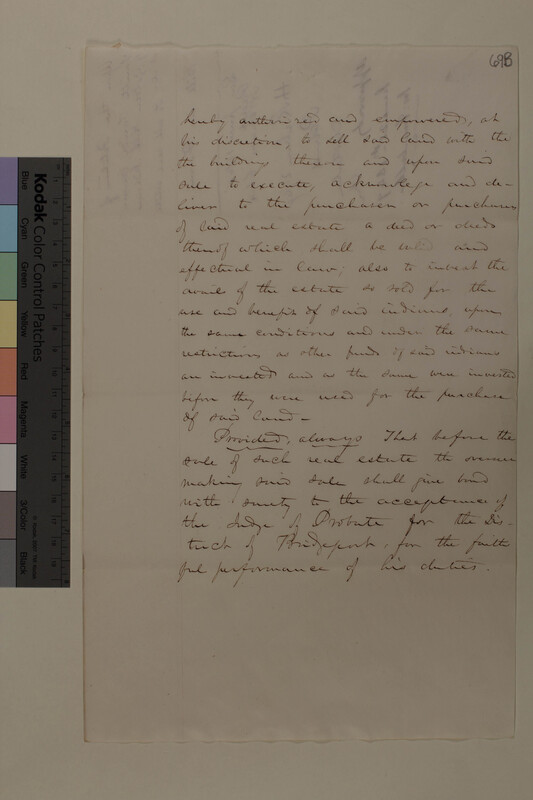 69B
hereby authorized and empowered, at
his discretion, to sell said land with the
the building thereon and upon said
sale to execute, acknowledge and de-
liver to the purchaser or purchasers
of said real estate a deed or deeds
thereof which shall be valid and
effectual in law; also to invest the
avails of the estate so sold for the
use and benefit of said indians, upon
the same conditions and under the same
restrictions as other funds of said indians
are invested and as the same were invested
before they were used for the purchase
of said land—
Provided, always That before the
sale of such real estate the overseer
making said sale shall give bond
with surety to the acceptance of
the Judge of Probate for the Dis-
trict of Bridgeport, for the faith
ful performance of his duties.
Kodak Color Control Patches
Blue
Cyan
Green
Yellow
Red
Magenta
White
3/Color
Black